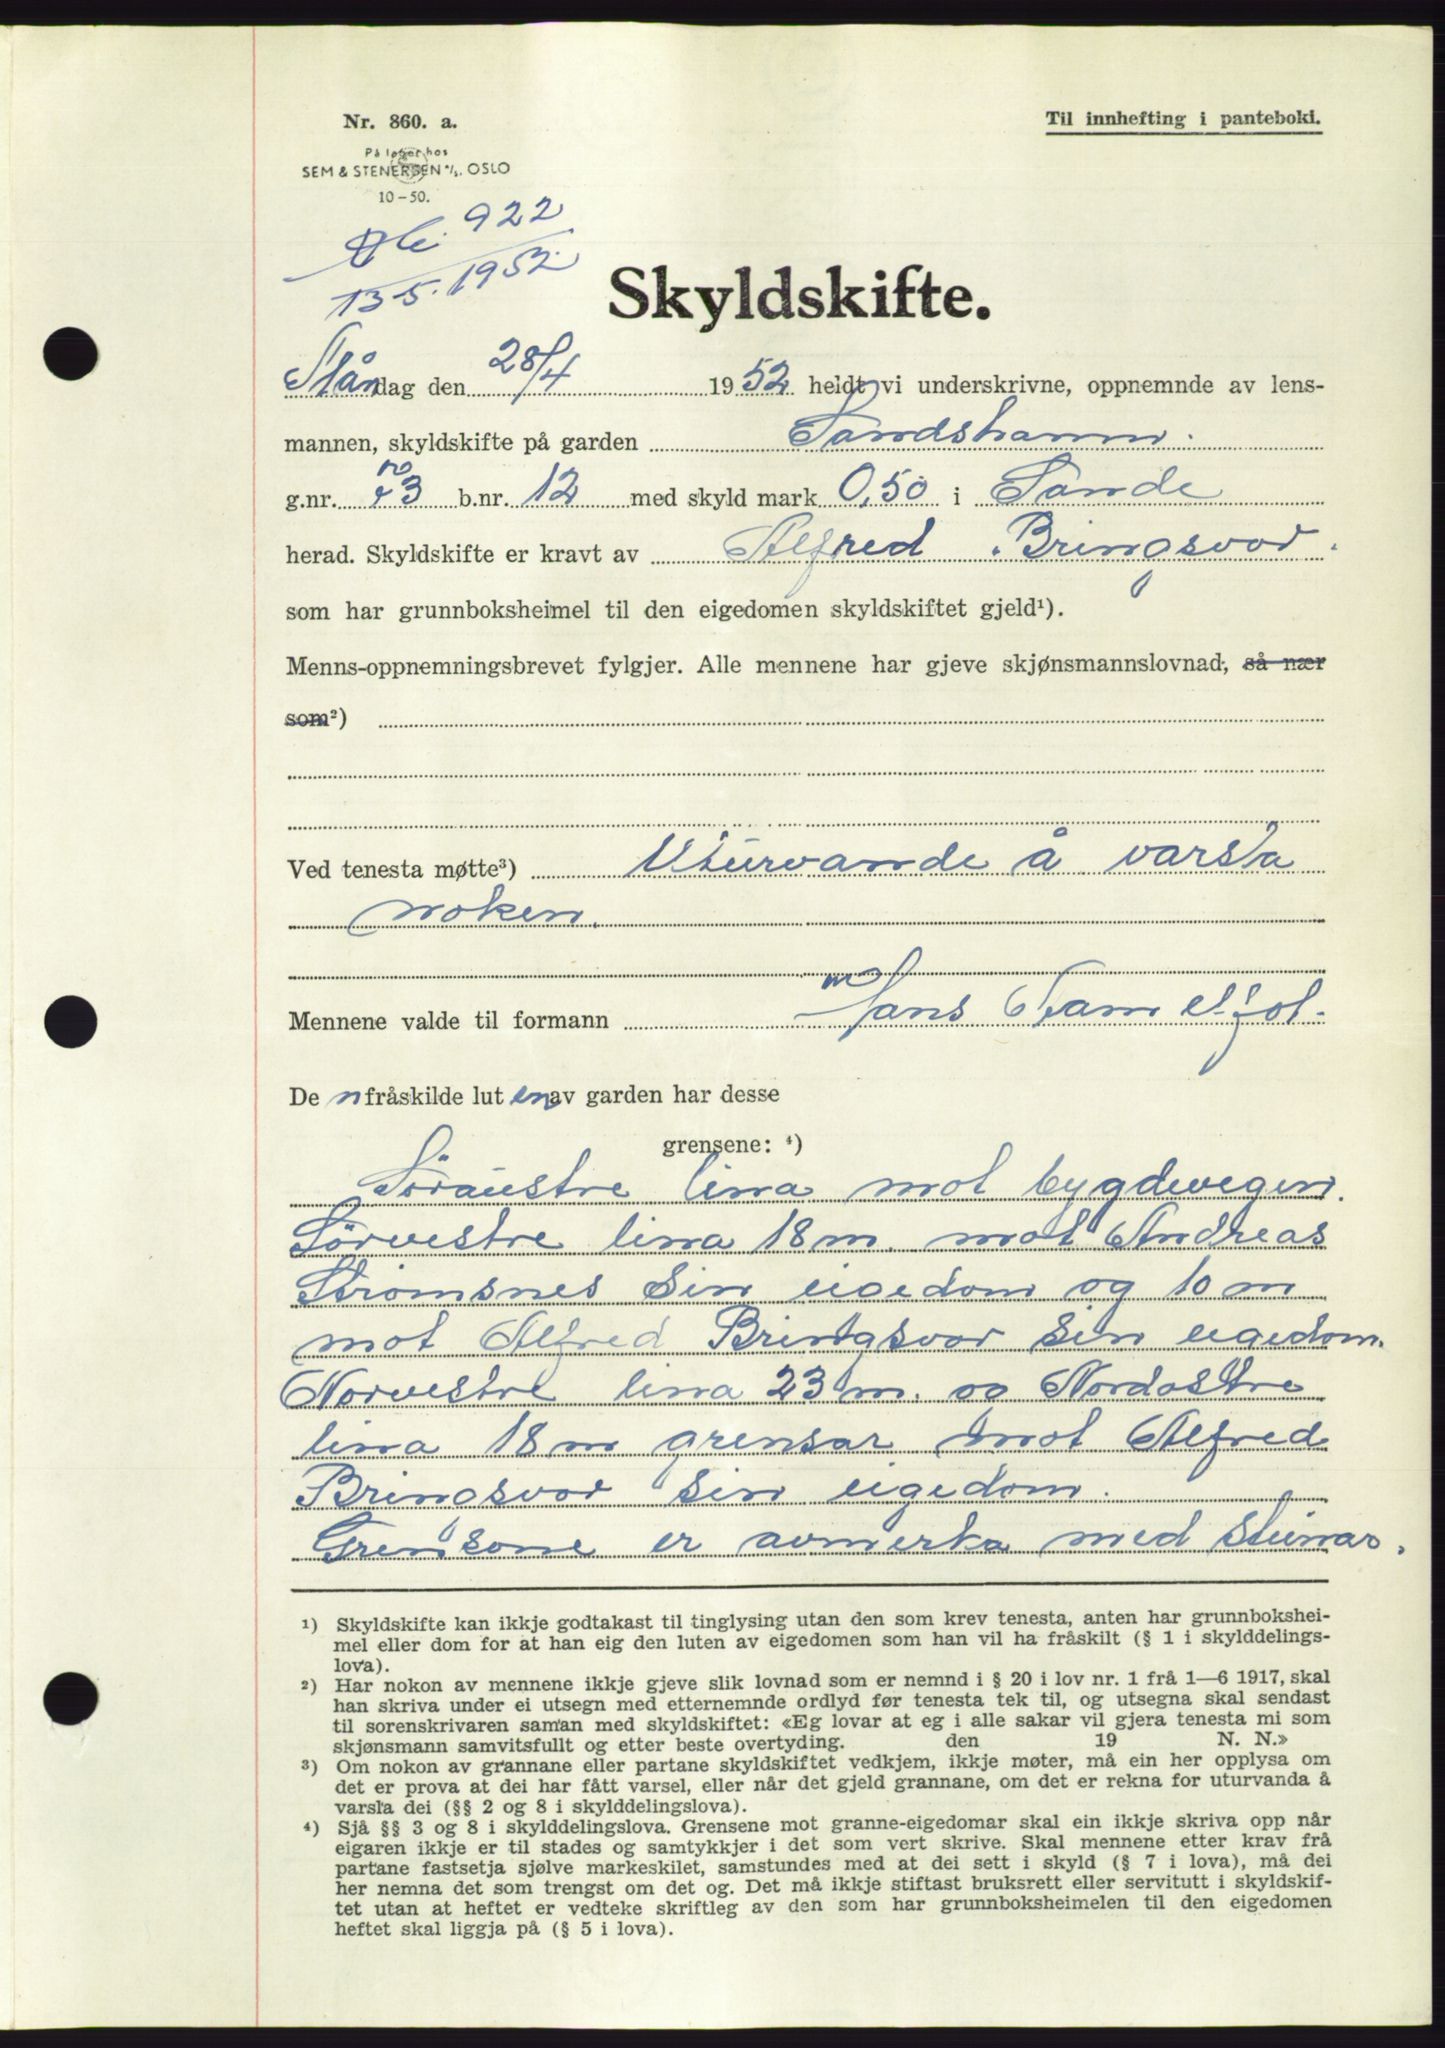 Nr. 860. a.
Til innhefting i panteboki.
På lager hos
SEM & STENERSEN A/S, OSLO
10-50.
922
13-5. 1952.
Skyldskifte.
Måndag den 28/4 1952 heldt vi underskrivne, oppnemnde av lens-
mannen, skyldskifte på garden Sandshamn.
g.nr. 3 b.nr. 12 med skyld mark 0,50 i Sande
herad. Skyldskifte er kravt av Alfred Bringsvor.
som har grunnboksheimel til den eigedomen skyldskiftet gjeld¹).
Menns-oppnemningsbrevet fylgjer. Alle mennene har gjeve skjønsmannslovnad, så nær
som²)
Ved tenesta møtte³) Uturvande å varsla
noken.
Mennene valde til formann Hans
De n fråskilde lut en av garden har desse
grensene: ⁴)
Søraustre lina mot bygdevegen.
Sørvestre lina 18 m. mot Andreas
Strømsnes sin eigedom og 10 m
mot Alfred Bringsvor sin eigedom.
Norvestre lina 23 m. og Nordøstre
lina 18 m grensar mot Alfred
Bringsvor sin eigedom.
Grensone er avmerka med steinar.
1) Skyldskifte kan ikkje godtakast til tinglysing utan den som krev tenesta, anten har grunnbokshei-
mel eller dom for at han eig den luten av eigedomen som han vil ha fråskilt (§ 1 i skylddelings-
lova).
2) Har nokon av mennene ikkje gjeve slik lovnad som er nemnd i § 20 i lov nr. 1 frå 1—6 1917, skal
han skriva under ei utsegn med etternemnde ordlyd før tenesta tek til, og utsegna skal sendast
til sorenskrivaren saman med skyldskiftet: «Eg lovar at eg i alle sakar vil gjera tenesta mi som
skjønsmann samvitsfullt og etter beste overtyding. den 19 N. N.»
3) Om nokon av grannane eller partane skyldskiftet vedkjem, ikkje møter, må ein her opplysa om
det er prova at dei har fått varsel, eller når det gjeld grannane, om det er rekna for uturvanda å
varsla dei (§§ 2 og 8 i skylddelingslova).
4) Sjå §§ 3 og 8 i skylddelingslova. Grensene mot granne-eigedomar skal ein ikkje skriva opp når
eigaren ikkje er til stades og samtykkjer i det som vert skrive. Skal mennene etter krav frå
partane fastsetja sjølve markeskilet, samstundes med at dei sett i skyld (§ 7 i lova), må dei
her nemna det som trengst om det og. Det må ikkje stiftast bruksrett eller servitutt i skyldskif-
tet utan at heftet er vedteke skriftleg av den som har grunnboksheimelen til den eigedomen
heftet skal liggja på (§ 5 i lova).